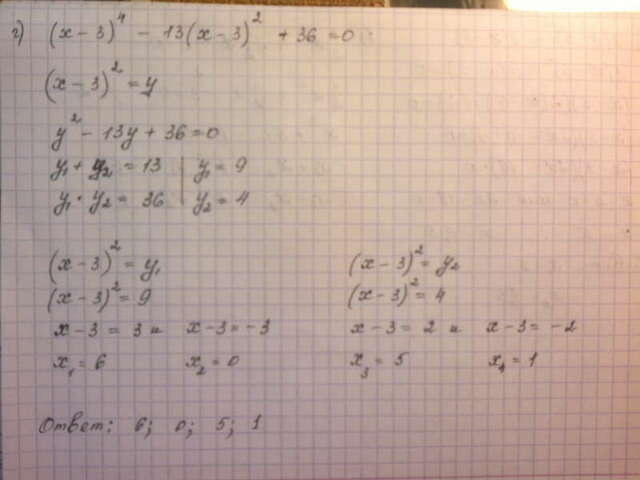 г) (x-3)⁴ - 13(x-3)² + 36 = 0
(x-3)² = y
y² - 13y + 36 = 0
y₁ + y₂ = 13 | y₁ = 9
y₁ · y₂ = 36 | y₂ = 4
(x-3)² = y₁ (x-3)² = y₂
(x-3)² = 9 (x-3)² = 4
x-3 = 3 и x-3 = -3 x-3 = 2 и x-3 = -2
x₁ = 6 x₂ = 0 x₃ = 5 x₄ = 1
Ответ: 6; 0; 5; 1